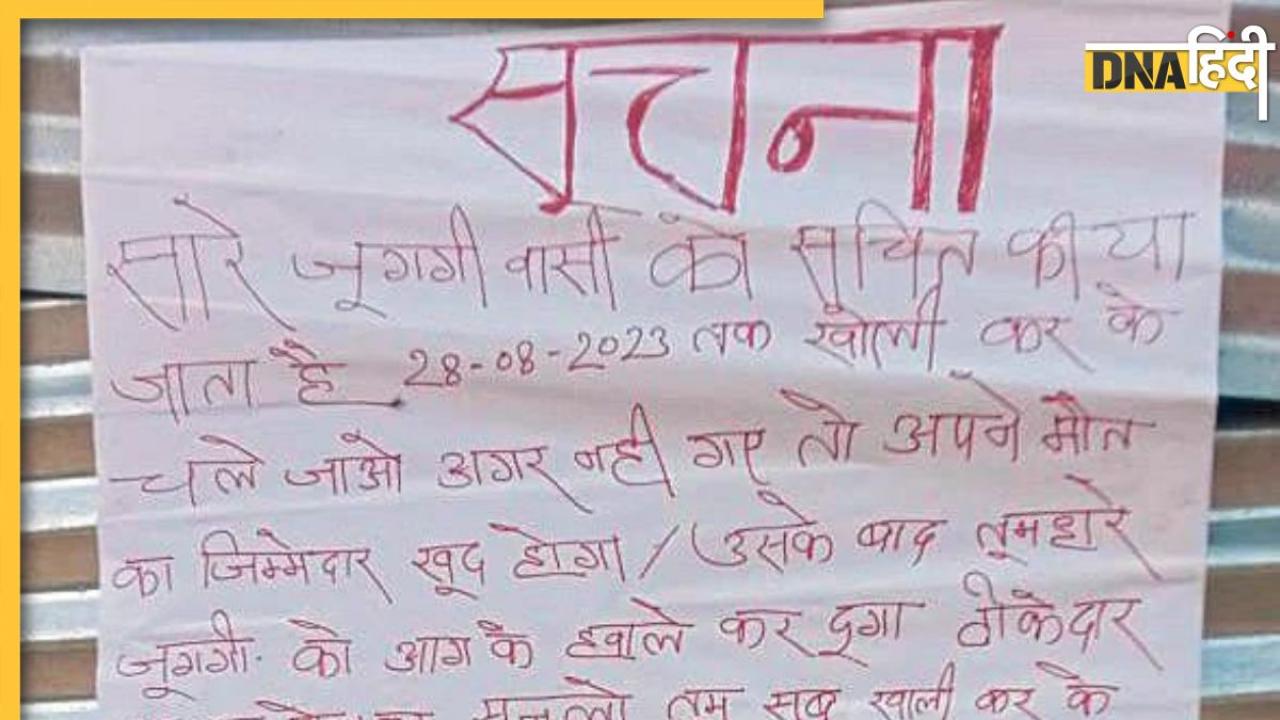 DNA हिंदी
सूचना
सारे जूगगी वासी को सूचित कीया
जाता है 28-08-2023 तक खोली कर के
चले जाओ अगर नही गए तो अपने मौत
का जिम्मेदार खूद होगा / उसके बाद तूमहारे
जूगगी को आग के हवाले कर दूगा ठीकेदार
सुनलो तुम सब खाली कर के